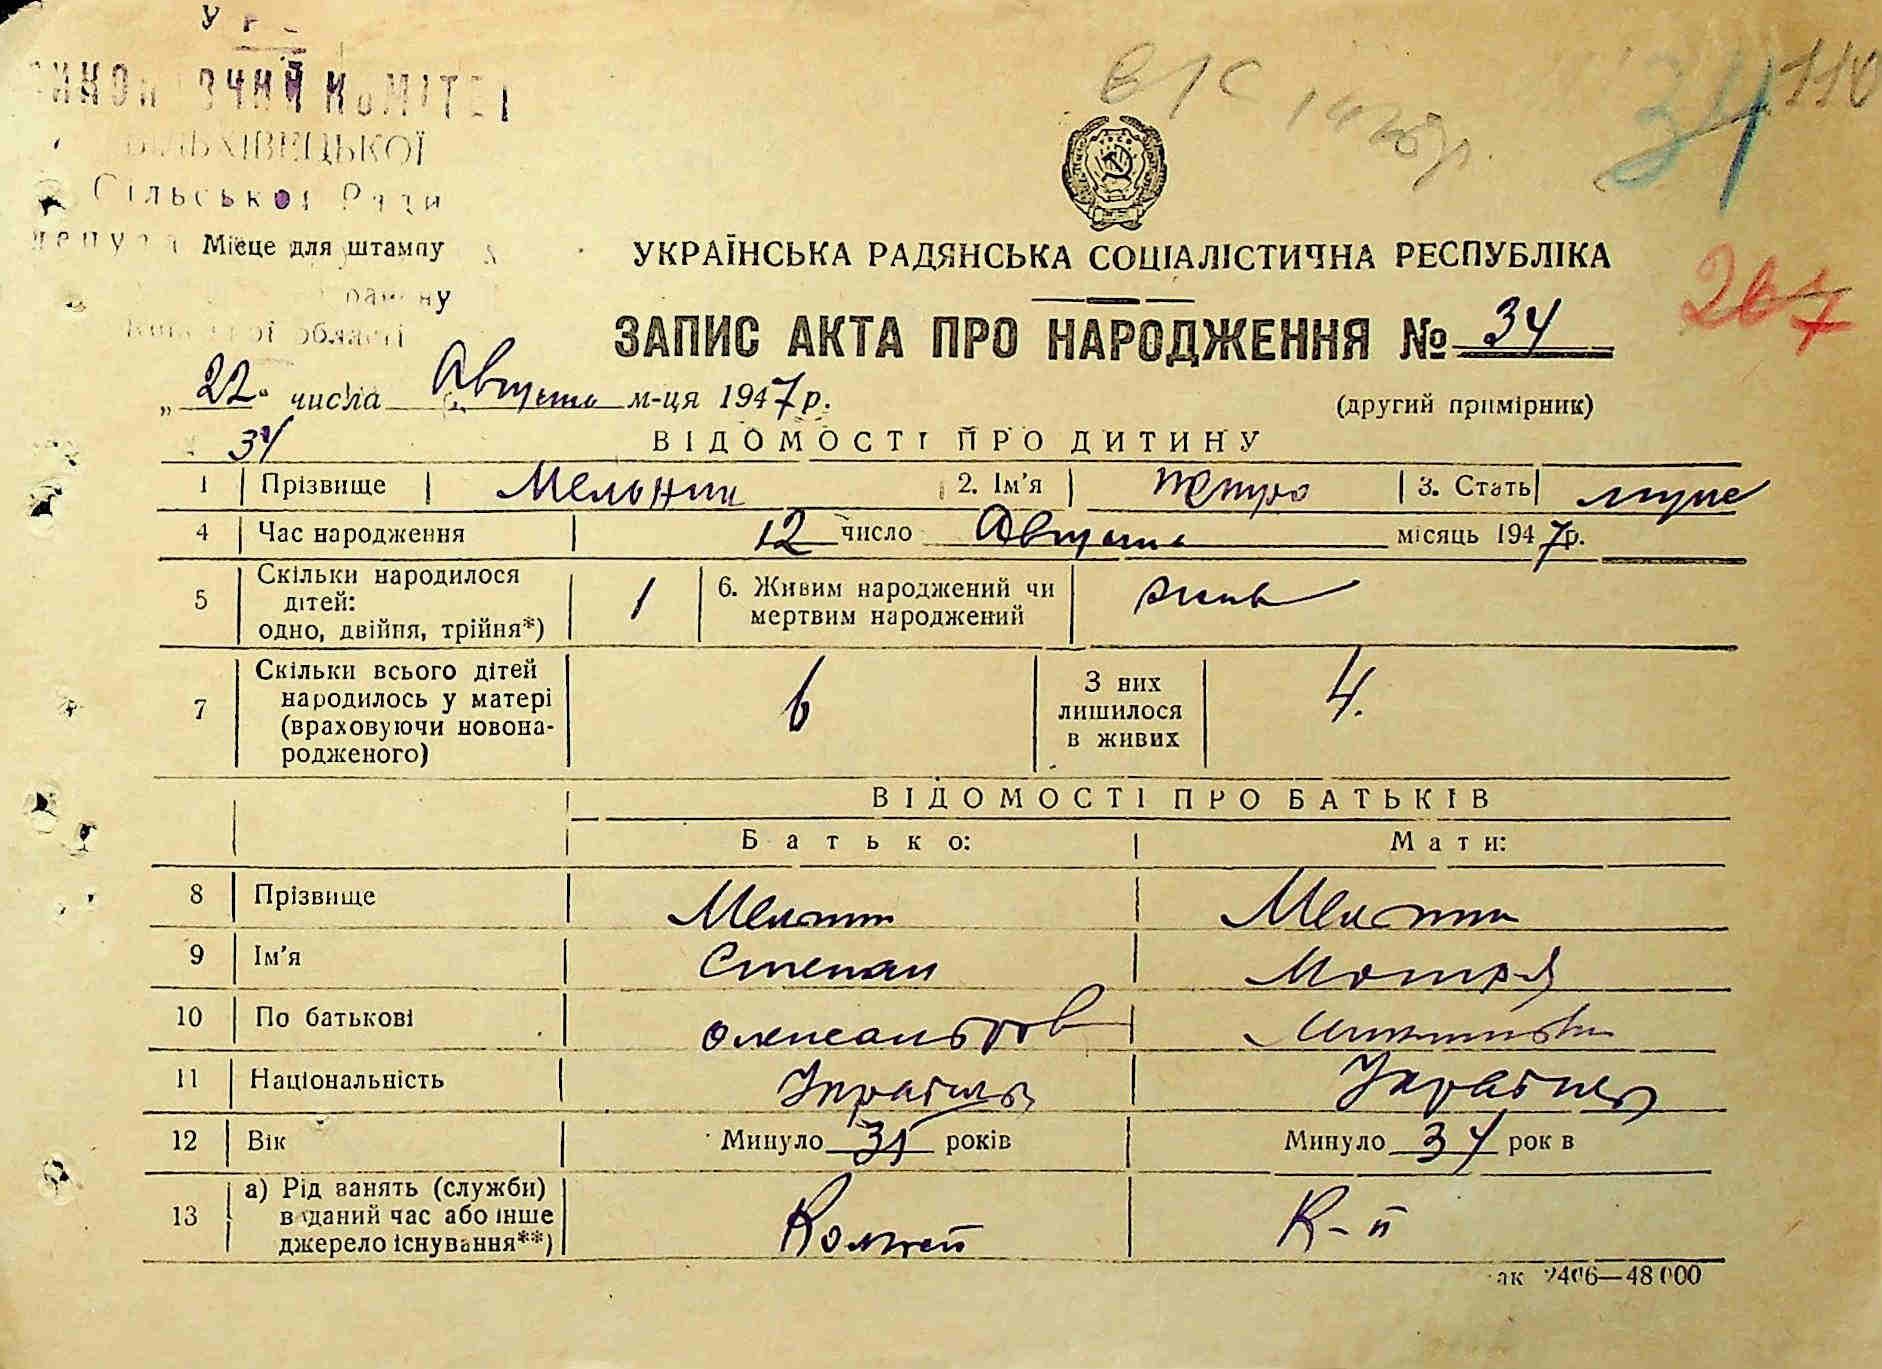 У Р
ВИКОНАВЧИЙ КОМІТЕТ
ВІЛЬХІВЕЦЬКОЇ
Сільської Ради
Місце для штампу
району
області
34 110
УКРАЇНСЬКА РАДЯНСЬКА СОЦІАЛІСТИЧНА РЕСПУБЛІКА
267
ЗАПИС АКТА ПРО НАРОДЖЕННЯ № 34
„22" числа Августа м-ця 1947 р.
(другий примірник)
34
ВІДОМОСТІ ПРО ДИТИНУ
1 Прізвище Мельник 2. Ім'я Петро 3. Стать муже
4 Час народження 12 число Августа місяць 1947 р.
5 Скільки народилося дітей: одно, двійня, трійня*) 1 6. Живим народжений чи мертвим народжений жив
7 Скільки всього дітей народилось у матері (враховуючи новонародженого) 6 З них лишилося в живих 4.
ВІДОМОСТІ ПРО БАТЬКІВ
Батько: Мати:
8 Прізвище Мельник Мельник
9 Ім'я Степан Мотря
10 По батькові Олександров
11 Національність Україн Українка
12 Вік Минуло 35 років Минуло 34 рок в
13 а) Рід занять (служби) в даний час або інше джерело існування**) Колгосп К-п
ак 2406—48 000